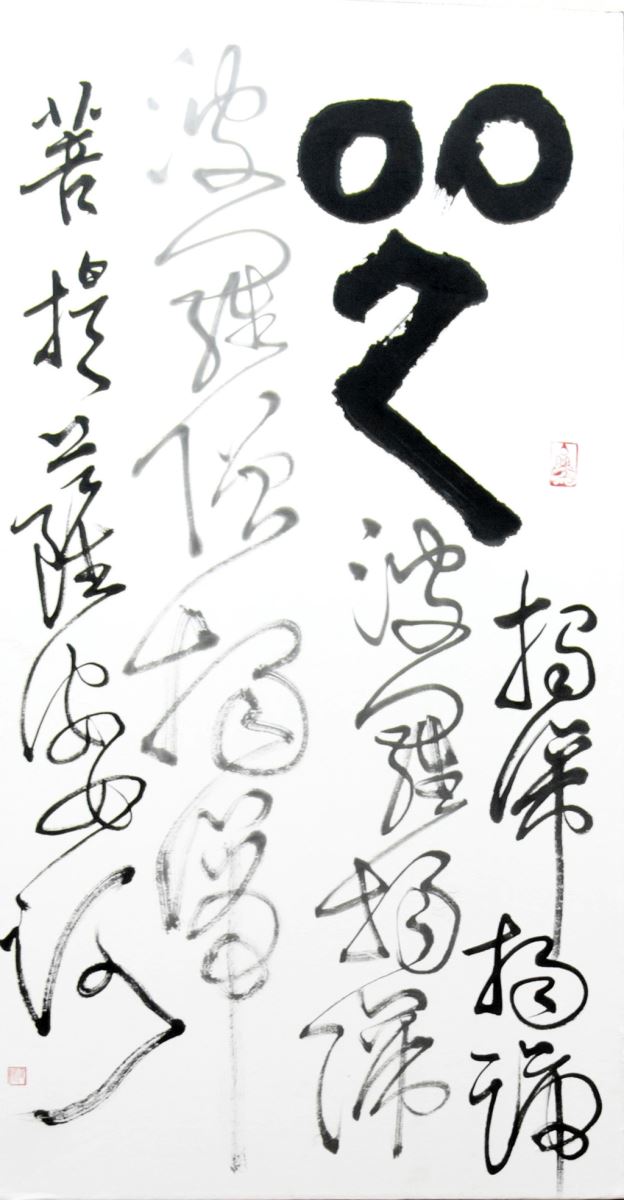 咒
揭諦揭諦
波羅揭諦
波羅僧揭諦
菩提薩婆訶